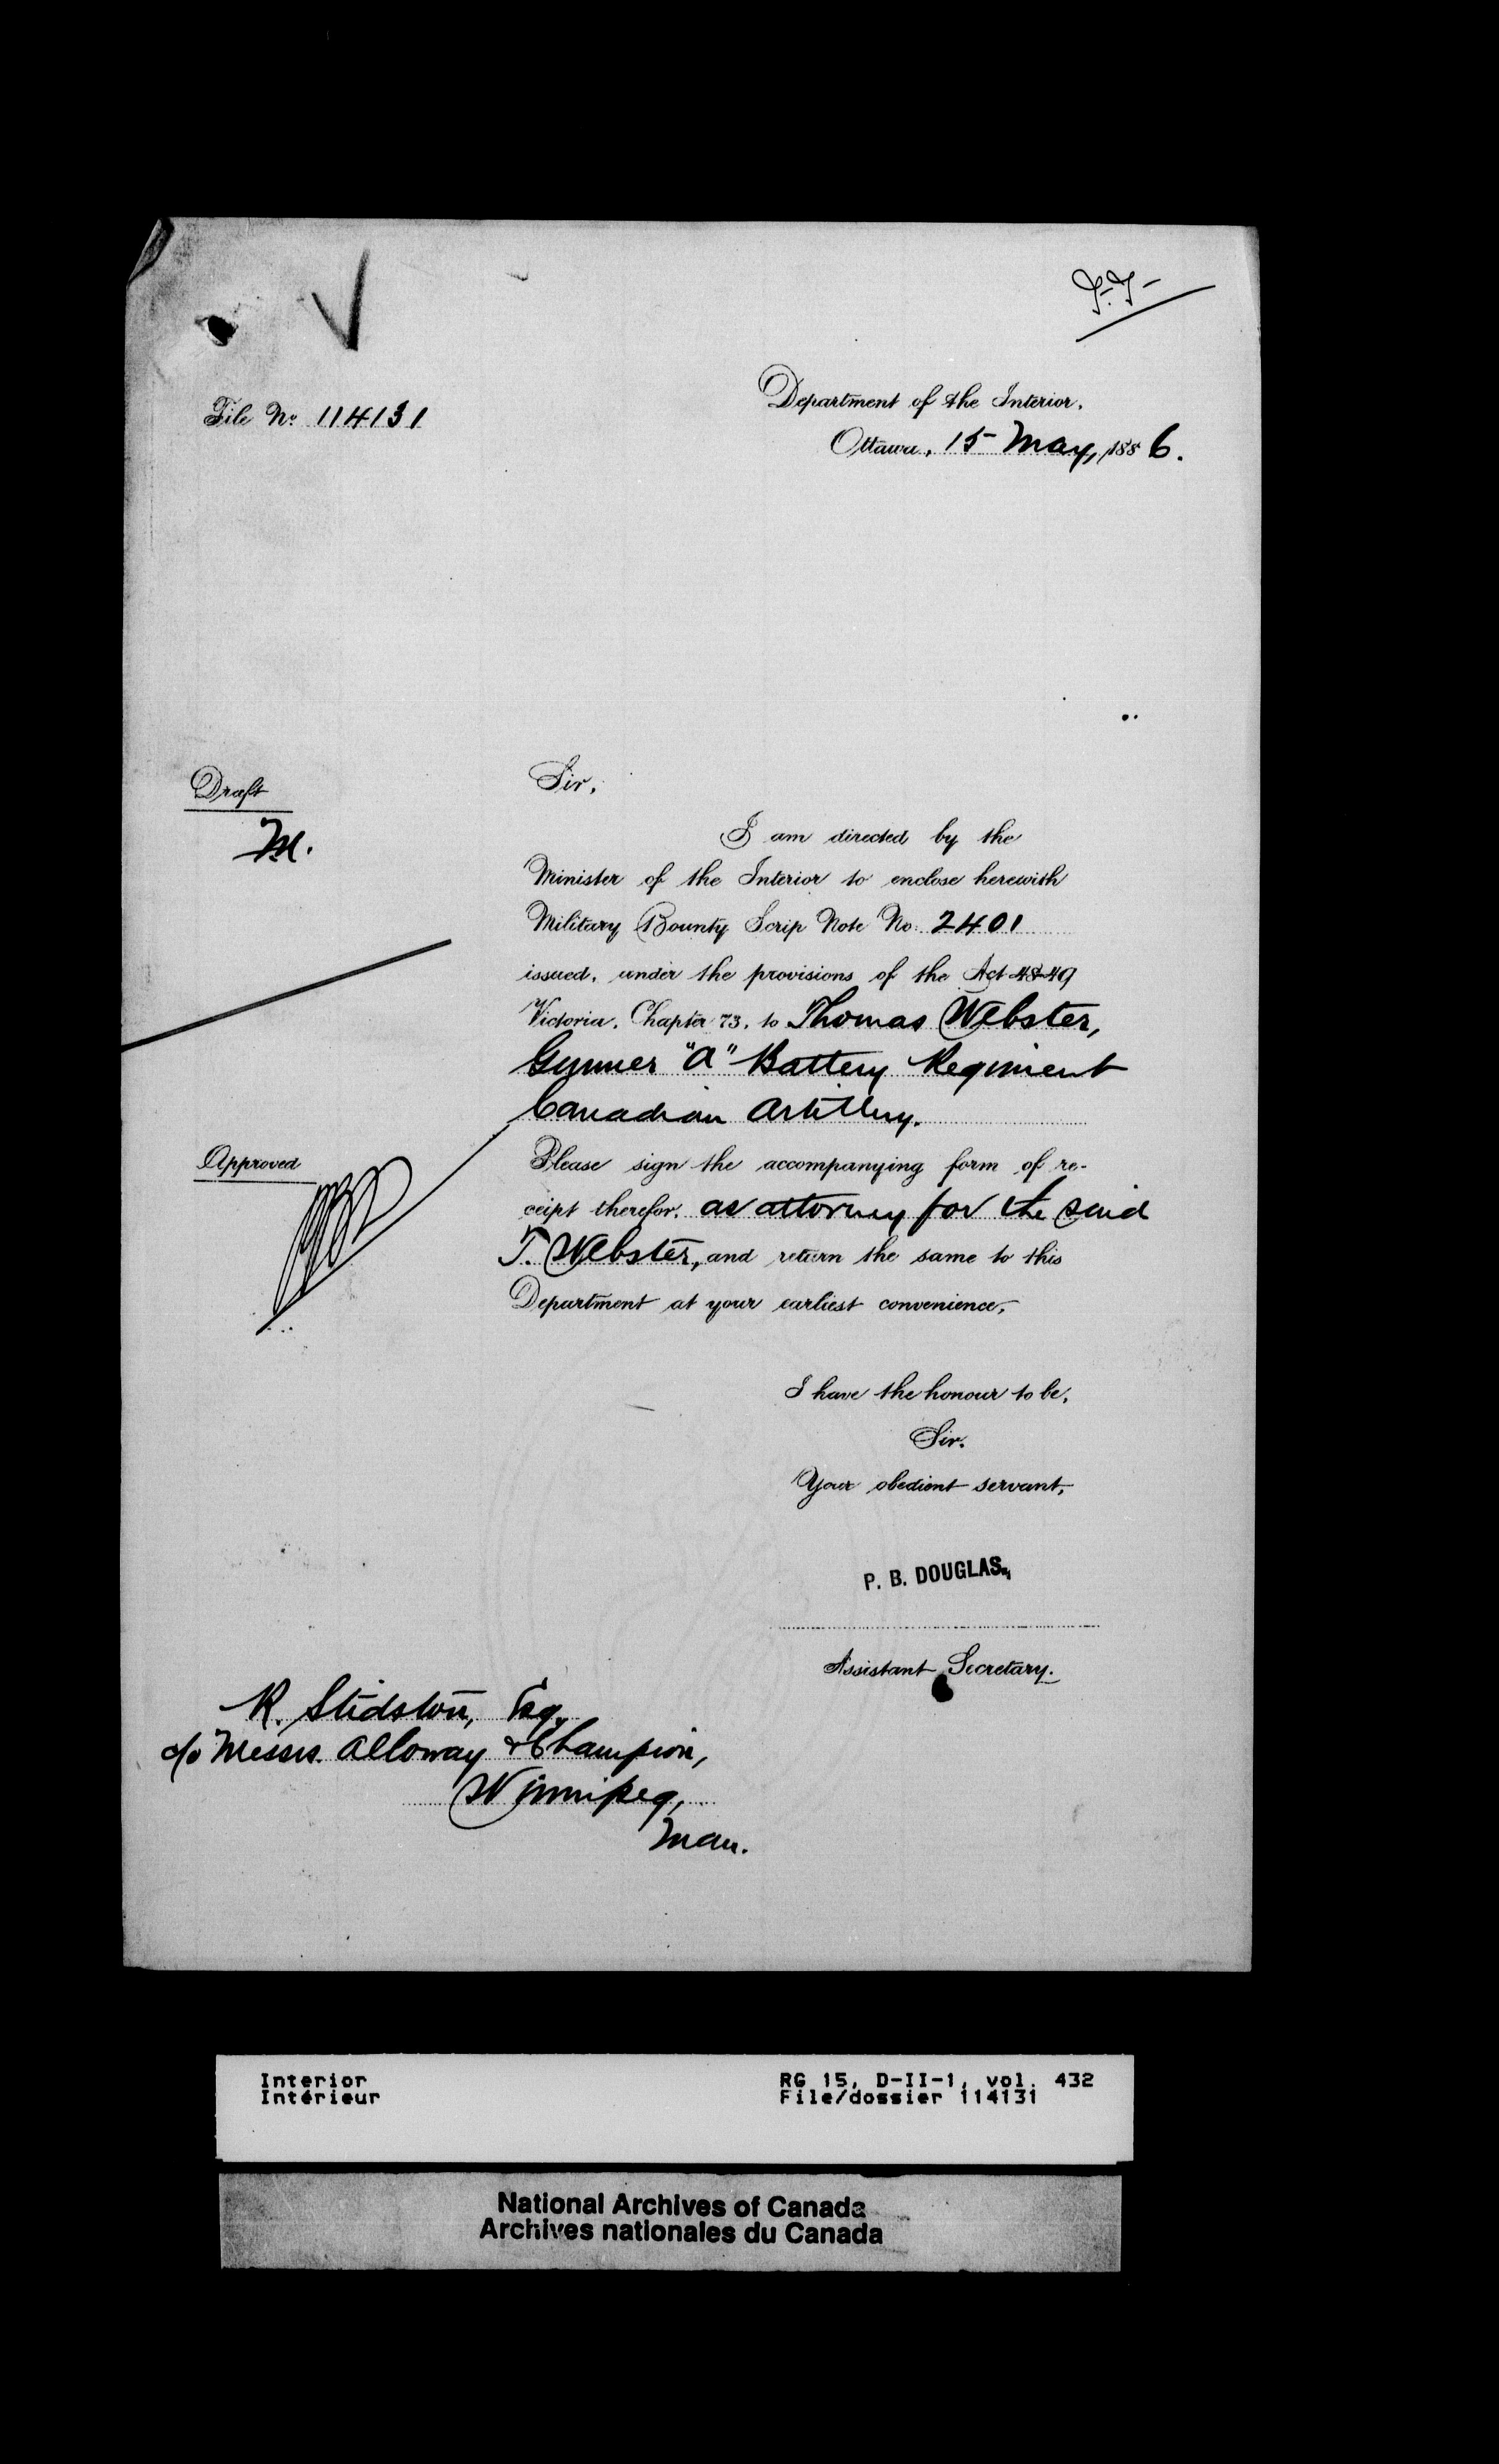 File No. 114131
Department of the Interior,
Ottawa, 15 May, 1886.
Draft
M.
Sir,
I am directed by the
Minister of the Interior to enclose herewith
Military Bounty Scrip Note No. 2401
issued, under the provisions of the Act 48-49
Victoria, Chapter 73, to Thomas Webster,
Gunner "A" Battery Regiment
Canadian Artillery.
Approved
Please sign the accompanying form of re-
ceipt therefor, as attorney for the said
T. Webster, and return the same to this
Department at your earliest convenience,
I have the honour to be,
Sir.
Your obedient servant,
P. B. DOUGLAS,
Assistant Secretary.
R. Stidston, Esq.
c/o Messrs. Alloway & Champion,
Winnipeg,
Man.
Interior
Intérieur
RG 15, D-II-1, vol. 432
File/dossier 114131
National Archives of Canada
Archives nationales du Canada